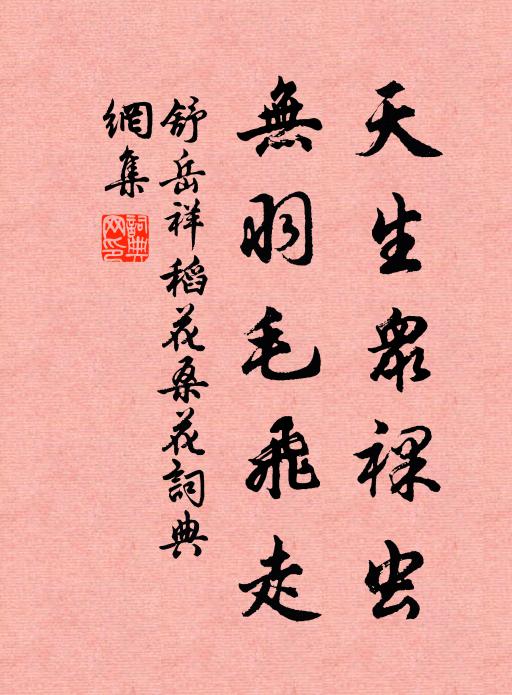 天生眾裸虫
無羽毛飛走
舒岳祥稻花桑花詞典
網集
詞典
网印